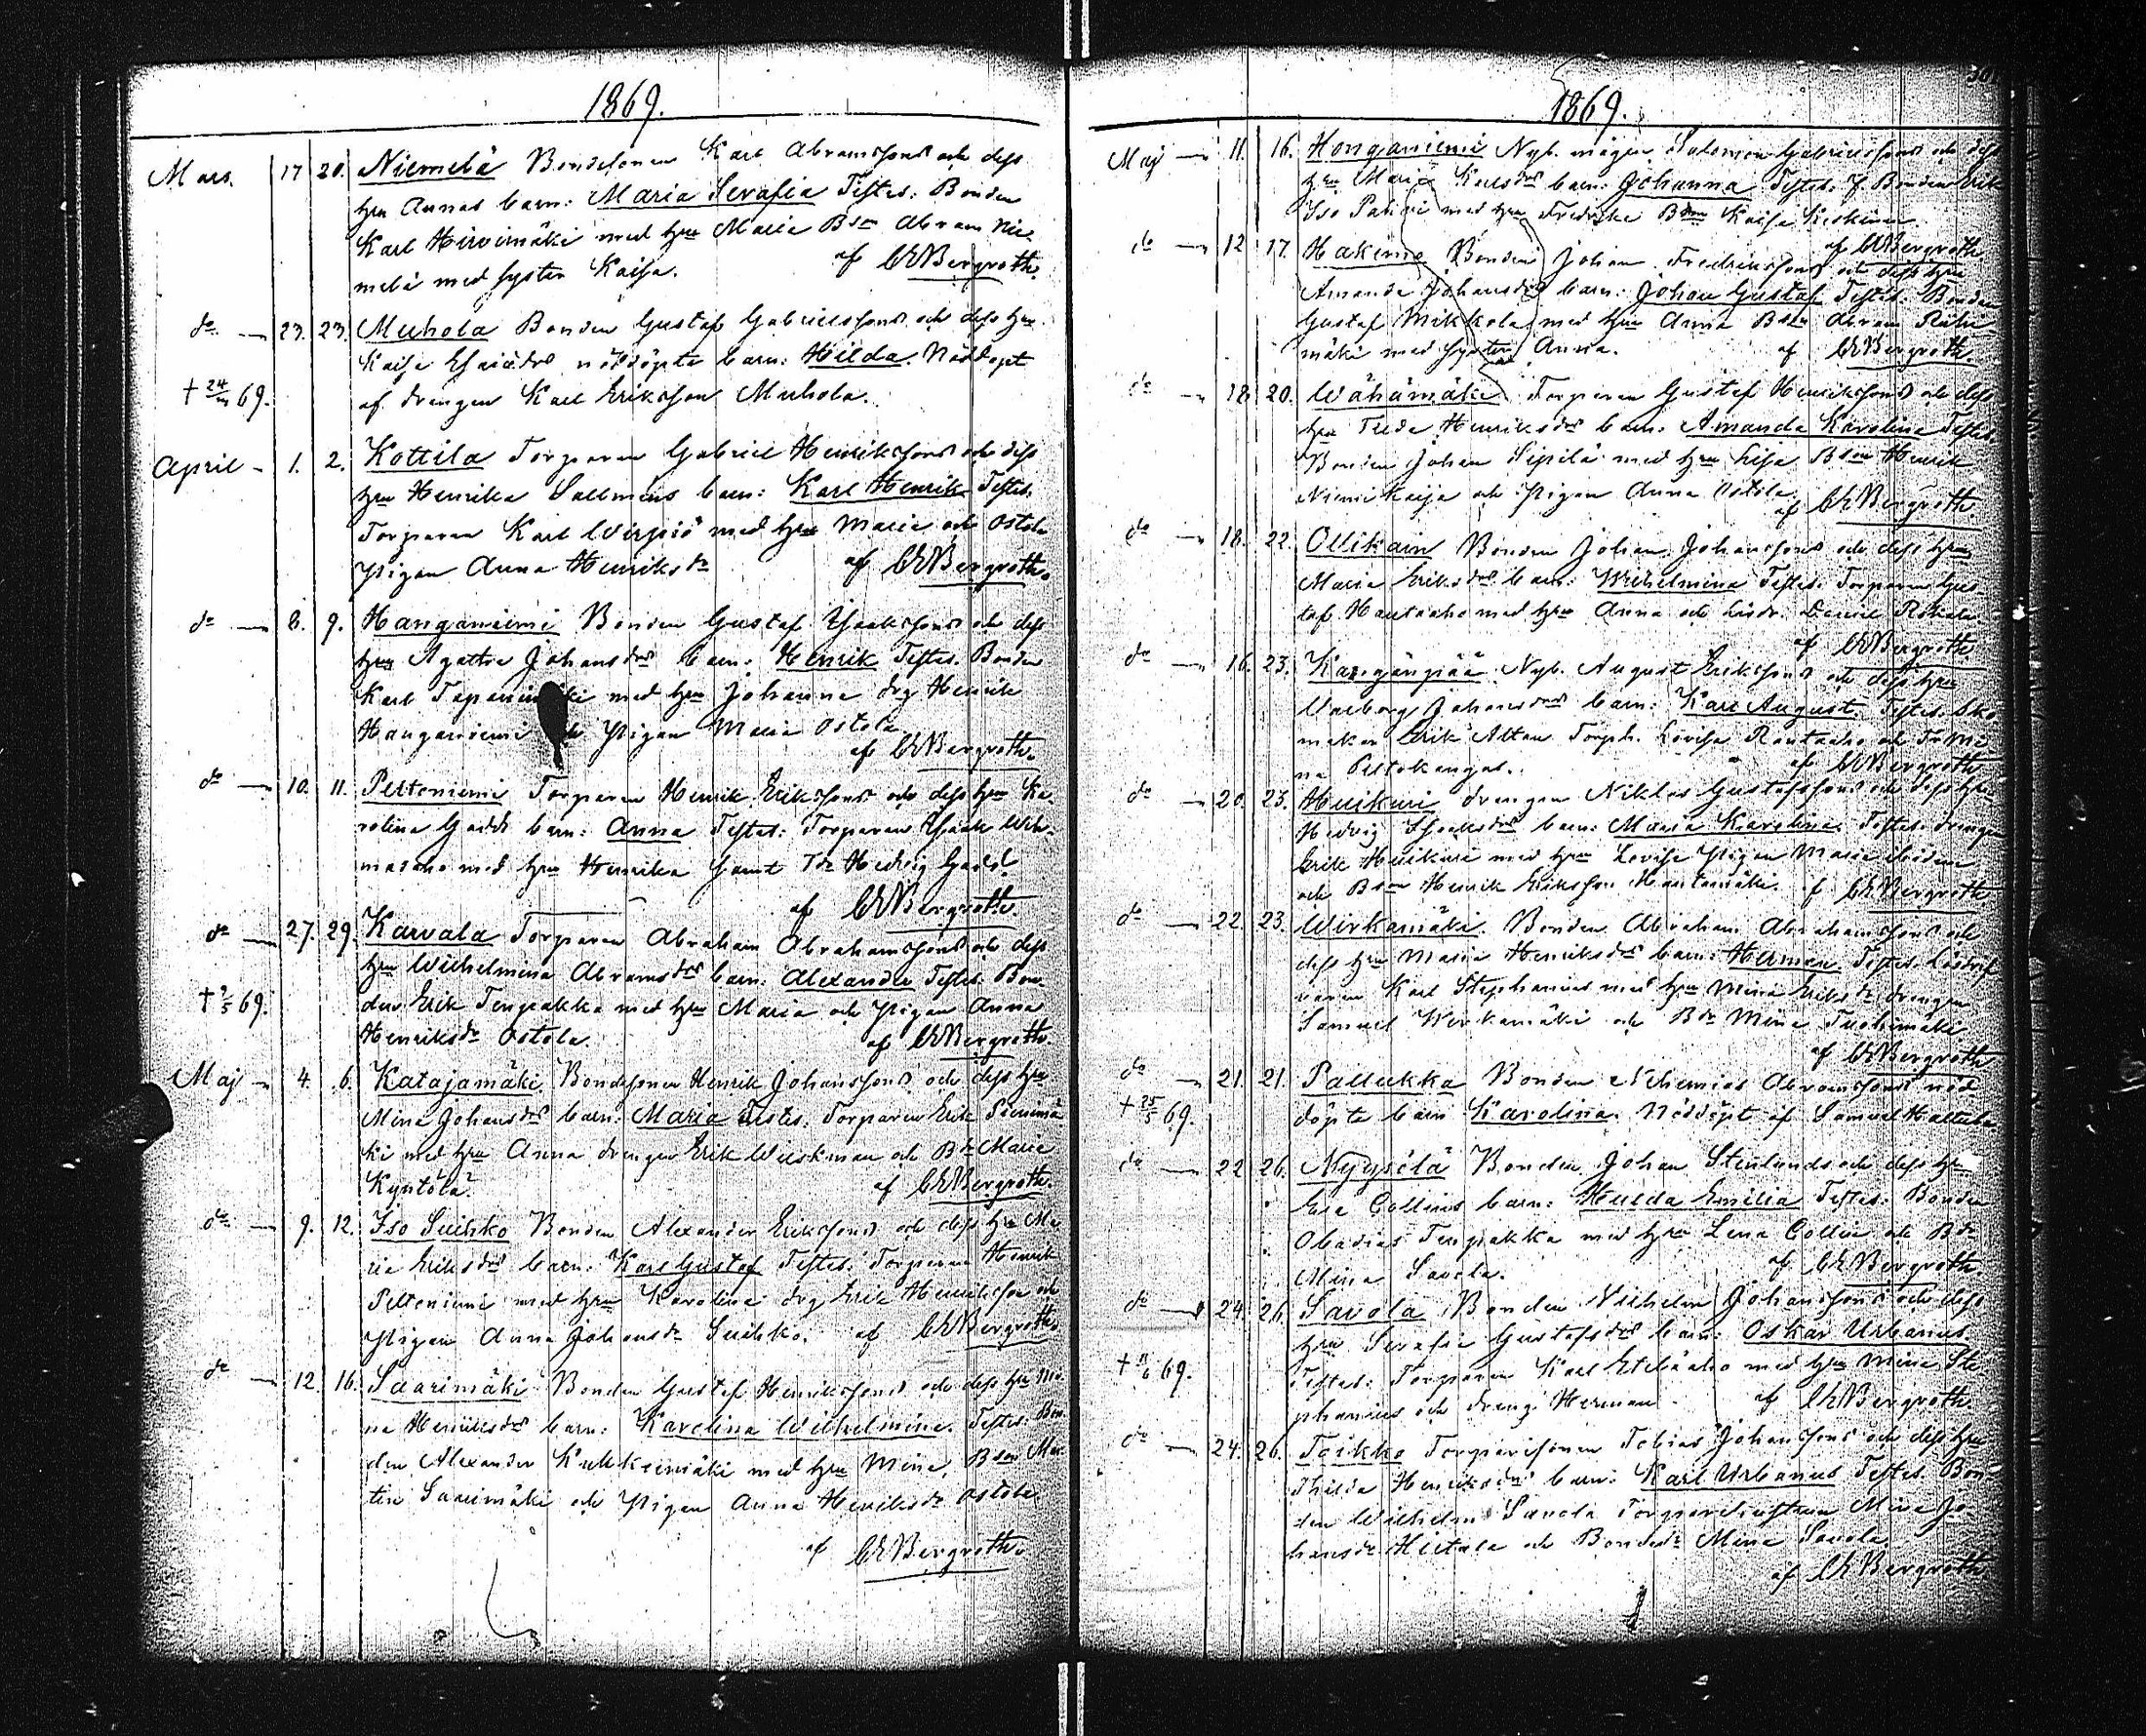 1869.
Mars. 17 20. Niemelä Bondesonen Karl Abramssons och dess
hru Annas barn: Maria Serafia Testes: Bonden
Karl Hirvimäki med hru Maria Bson Abram Nie-
melä med syster Kaisa. af CEBergroth.
do 23. 23. Muhola Bonden Gustaf Gabrielssons och dess hru
Kaisa Esaiædrs nöddöpta barn: Hilda. Nöddöpt
† 24/m 69. af drengen Karl Eriksson Muhola.
April 1. 2. Kottila Torparen Gabriel Henrikssons och dess
hru Henrika Sallmens barn: Karl Henrik Testes.
Torparen Karl Wirpiö med hru Maria och Ostola
Pigan Anna Henriksdr af CEBergroth.
do 8. 9. Hanganiemi Bonden Gustaf Isakssons och dess
hru Agatha Johansdrs barn: Henrik Testes. Bonden
Karl med hru Johanna drg Henrik
Hanganiemi Pigan Maria Ostola
af CEBergroth.
do 10. 11. Peltoniemi Torparen Henrik Erikssons och dess hru Ka-
rolina Gadds barn: Anna Testes: Torparen Isaak
med hru Henrika samt Tdr Hedvig Gadd.
af CEBergroth.
do 27. 29. Karvala Torparen Abraham Abrahamssons och dess
hru Wilhelmina Abramsdrs barn: Alexander Testes: Bon-
† 9/5 69. den Erik Tenpakka med hru Maria och Pigan Anna
Henriksdr Ostola. af CEBergroth.
Maj 4. 6. Katajamäki Bondesonen Henrik Johanssons och dess hru
Mina Johansdrs barn: Maria Testes. Torparen Erik Pienimä-
ki med hru Anna drengen Erik Wiskman och Bdr Maria
Kyntölä. af CEBergroth.
do 9. 12. Iso Suihko Bonden Alexander Erikssons och dess hru Ma-
ria Eriksdrs barn: Karl Gustaf Testes: Torparen Henrik
Peltoniemi med hru Karolina drg Erik Henriksson och
Pigan Anna Johansdr Suihko. af CEBergroth.
do 12. 16. Saarimäki Bonden Gustaf Henrikssons och dess hru Mi-
na Henriksdrs barn: Karolina Wilhelmina. Testes: Bon-
den Alexander med hru Mina, Bson Mar-
tin Saarimäki och Pigan Anna Henriksdr Ostola
af CEBergroth.
1869.
Maj 11. 16. Honganiemi Nyb. mågen Salomon Gabrielssons och dess
hru Maria Karlsdrs barn: Johanna Testes: Bonden Erik
Iso med hru Fredrika Bdr Kaisa
af CEBergroth
do 12 17. Hakomo Bonden Johan Fredrikssons och dess hru
Amanda Johansdrs barn: Johan Gustaf Testes. Bonden
Gustaf Mikkola med hru Anna Bson Abram
mäki med syster Anna. af CEBergroth.
do 18 20. Wähämäki Torparen Gustaf Henrikssons och dess
hru Tilda Henriksdrs barn: Amanda Karolina Testes.
Bonden Johan Sipilä med hru Lisa Bson Henrik
Niemi Kaisa och Pigan Anna Ostola.
af CEBergroth.
do 18. 22. Ollikain Bonden Johan Johanssons och dess hru
Maria Eriksdrs barn: Wilhelmina Testes. Torparen Gus-
taf Hautaaho med hru Anna och
af CEBergroth.
do 16. 23. Kangänpää Nyb. August Erikssons och dess hru
Warborg Johansdrs barn: Karl August. Testes: Sko-
makar Erik Altan Torph. Lovisa Rantaaho och Tdr Mi-
na Peltokangas. af CEBergroth
do 20. 23. Huikuri drengen Niklas Gustafssons och dess hru
Hedvig Isaksdrs barn: Maria Karolina Testes: drengen
Erik Huikuri med hru Lovisa Pigan Maria ibidem
och Bson Henrik Eriksson Hautamäki. af CEBergroth
do 22. 23. Wirkamäki. Bonden Abraham Abrahamssons och
dess hru Maria Henriksdrs barn: Herman. Testes:
Karl Stephanius med hru Mina Eriksdr drengen
Samuel Wirkamäki och Bdr Mina
af CEBergroth
do 21. 21. Pallukka Bonden Nehemias Abramssons nöd-
† 25/5 69. döpta barn Karolina. Nöddöpt af Samuel
do 22 26. Nyysölä Bonden Johan Stenlunds och dess hru
Eva Collins barn: Hulda Emilia Testes: Bonden
Obadias Tenpakka med hru Lena Collin och Bdr
Mina Savola. af CEBergroth.
do 24. 26. Savola Bonden Wilhelm Johanssons och dess
hru Serafia Gustafsdrs barn: Oskar Urbanus
† 11/6 69. Testes: Torparen Karl Eteläaho med hru Mina Ste-
phanius och dreng. Herman. af CEBergroth.
do 24. 26. Toikko Torparesonen Tobias Johanssons och dess hru
Thilda Henriksdrs barn: Karl Urbanus Testes. Bon-
den Wilhelm Savola Mina Jo-
hansdr Hietala och Bondedr Mina Savola.
af CEBergroth